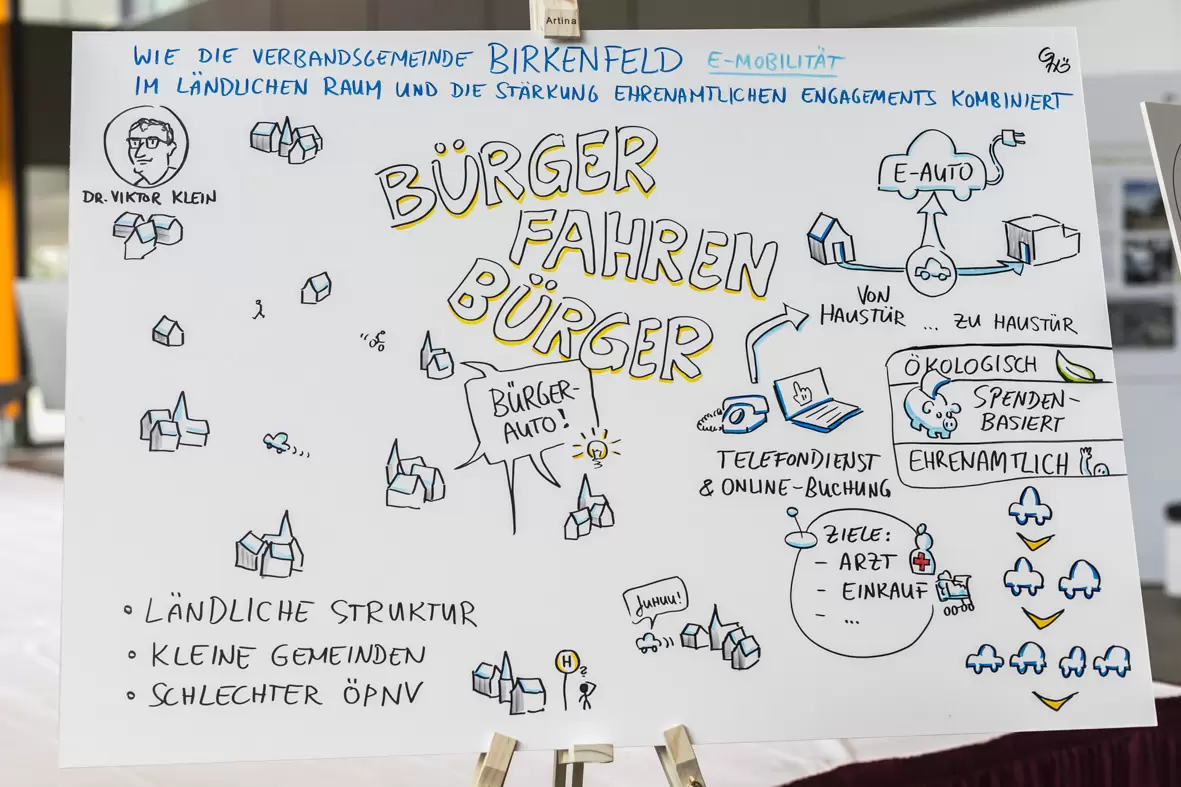 Artina
WIE DIE VERBANDSGEMEINDE BIRKENFELD E-MOBILITÄT
IM LÄNDLICHEN RAUM UND DIE STÄRKUNG EHRENAMTLICHEN ENGAGEMENTS KOMBINIERT
DR. VIKTOR KLEIN
BÜRGER
FAHREN
BÜRGER
BÜRGER-
AUTO!
E-AUTO
VON
HAUSTÜR ... ZU HAUSTÜR
ÖKOLOGISCH
SPENDEN-
BASIERT
EHRENAMTLICH
TELEFONDIENST
& ONLINE-BUCHUNG
ZIELE:
- ARZT
- EINKAUF
- ...
• LÄNDLICHE STRUKTUR
• KLEINE GEMEINDEN
• SCHLECHTER ÖPNV
H
?
JUHUU!